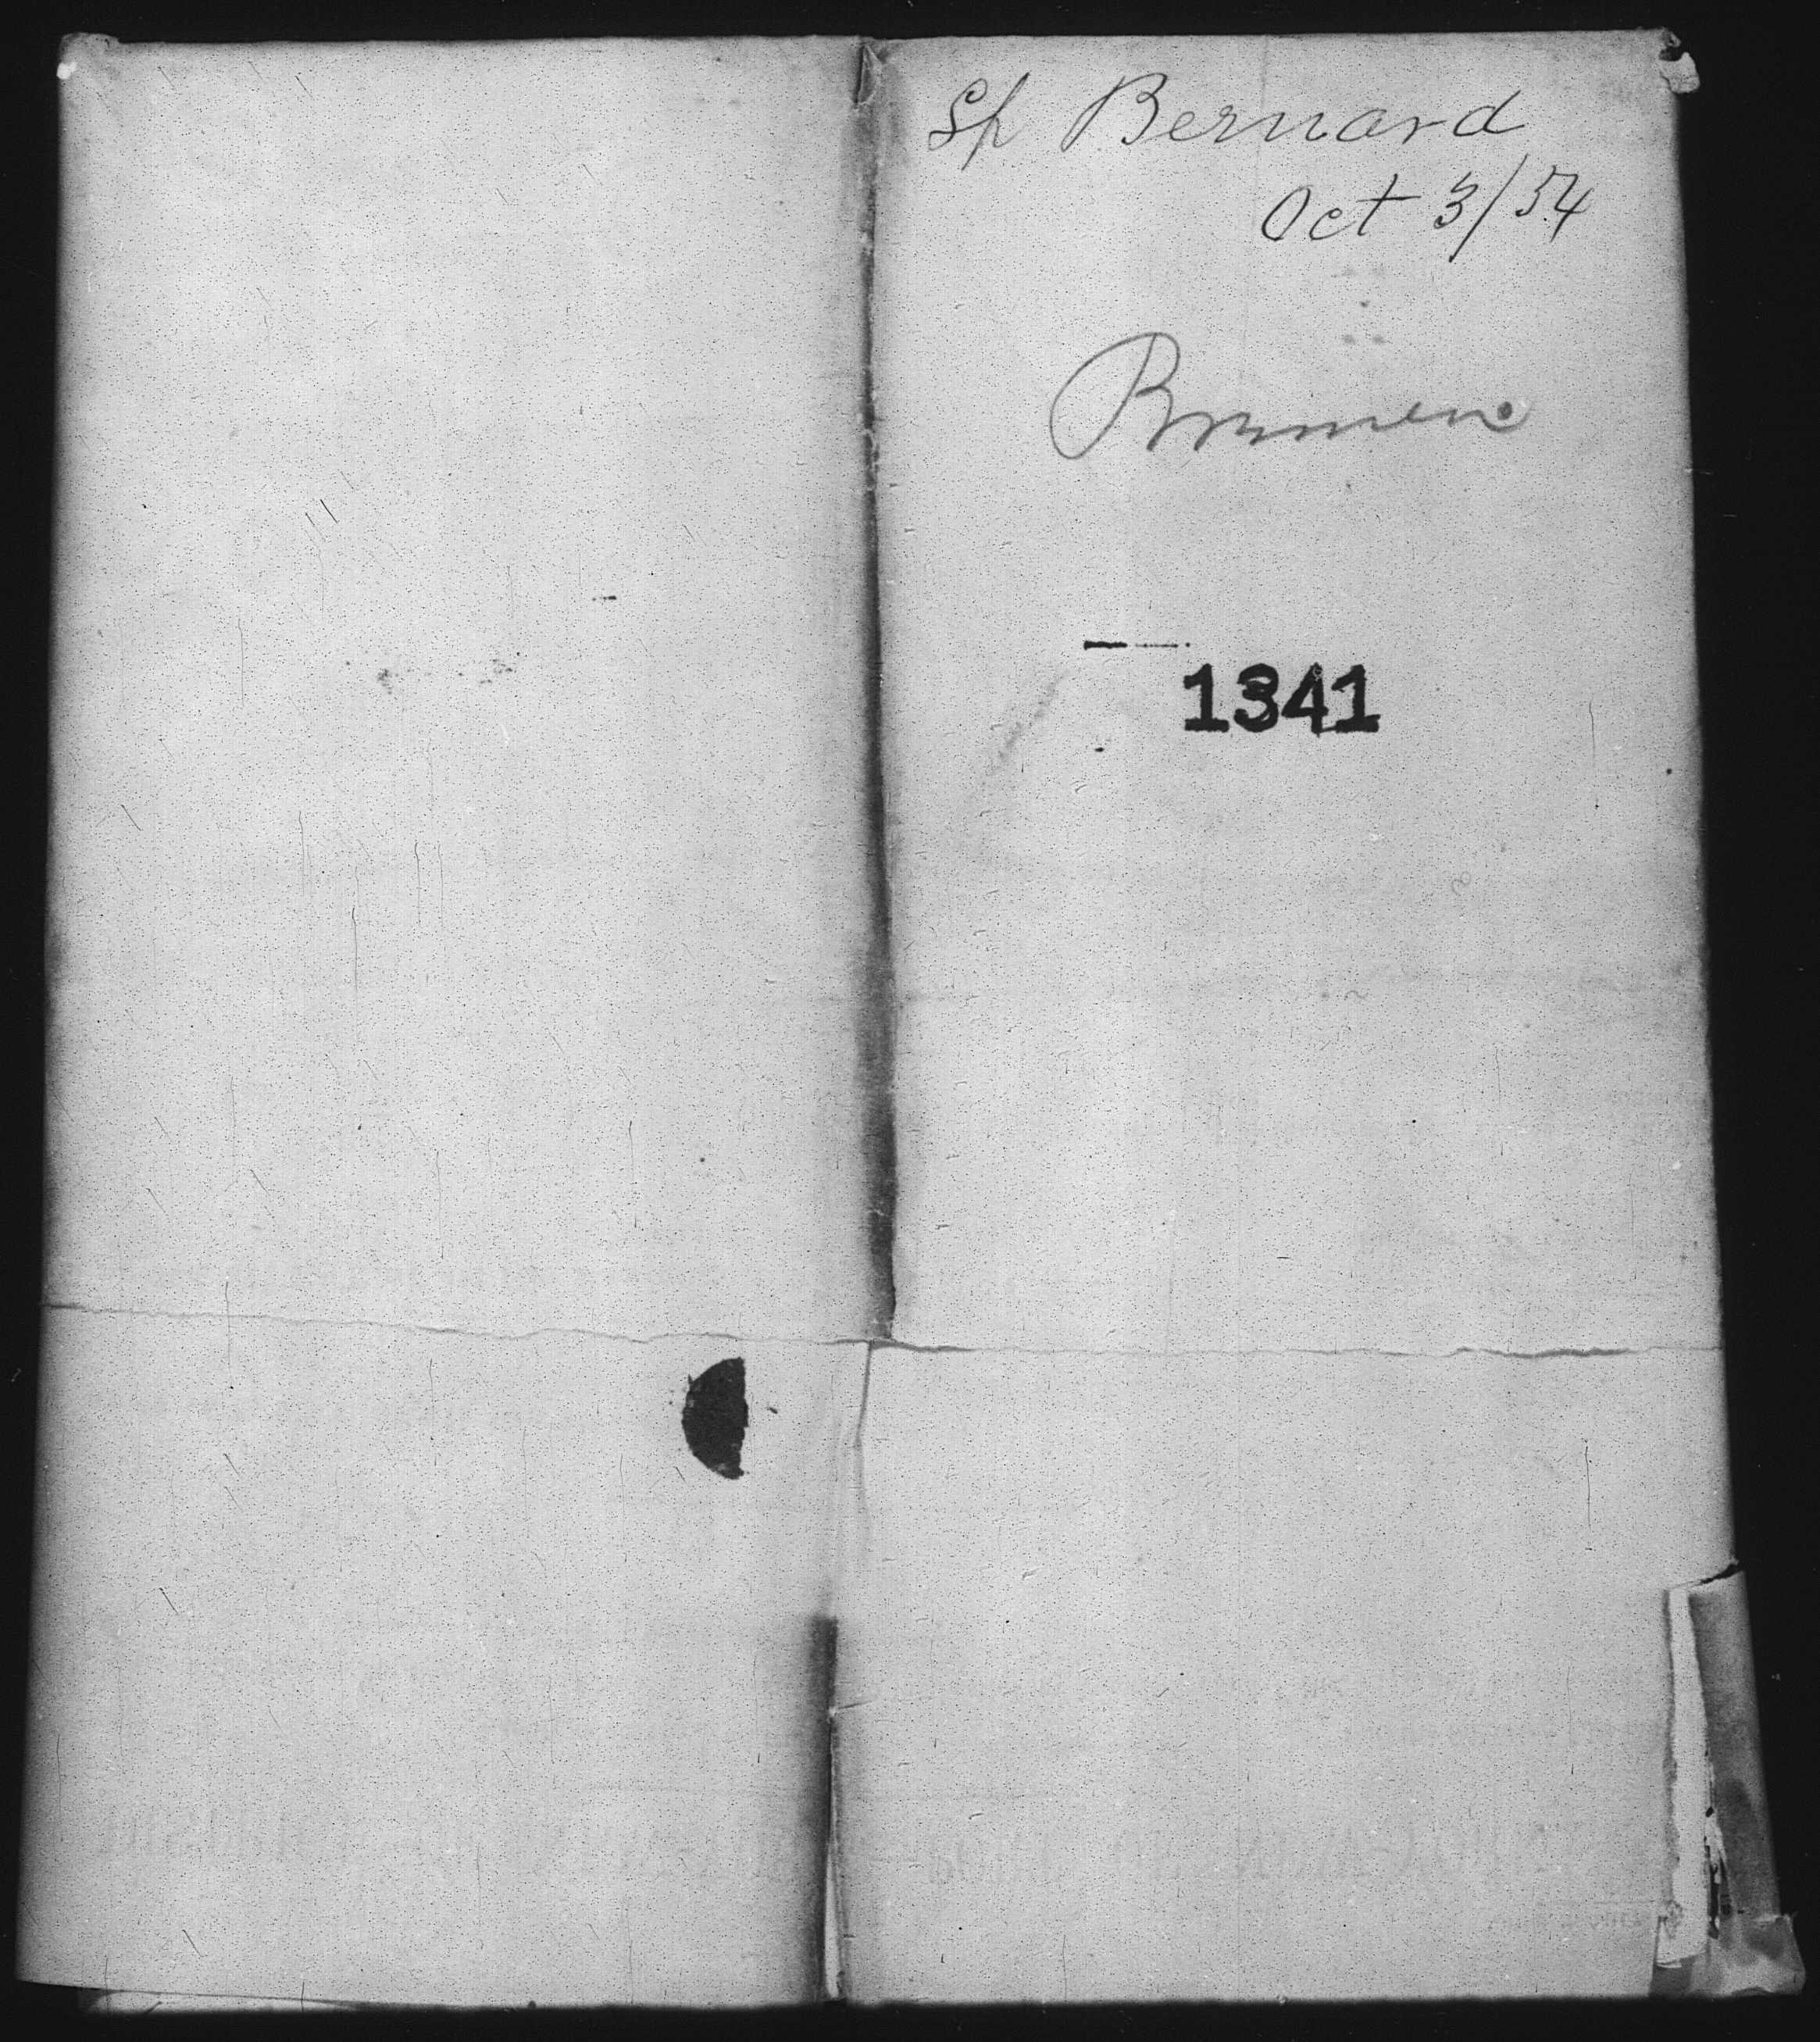 Sp Bernard
Oct 3/54
Bremen
1341